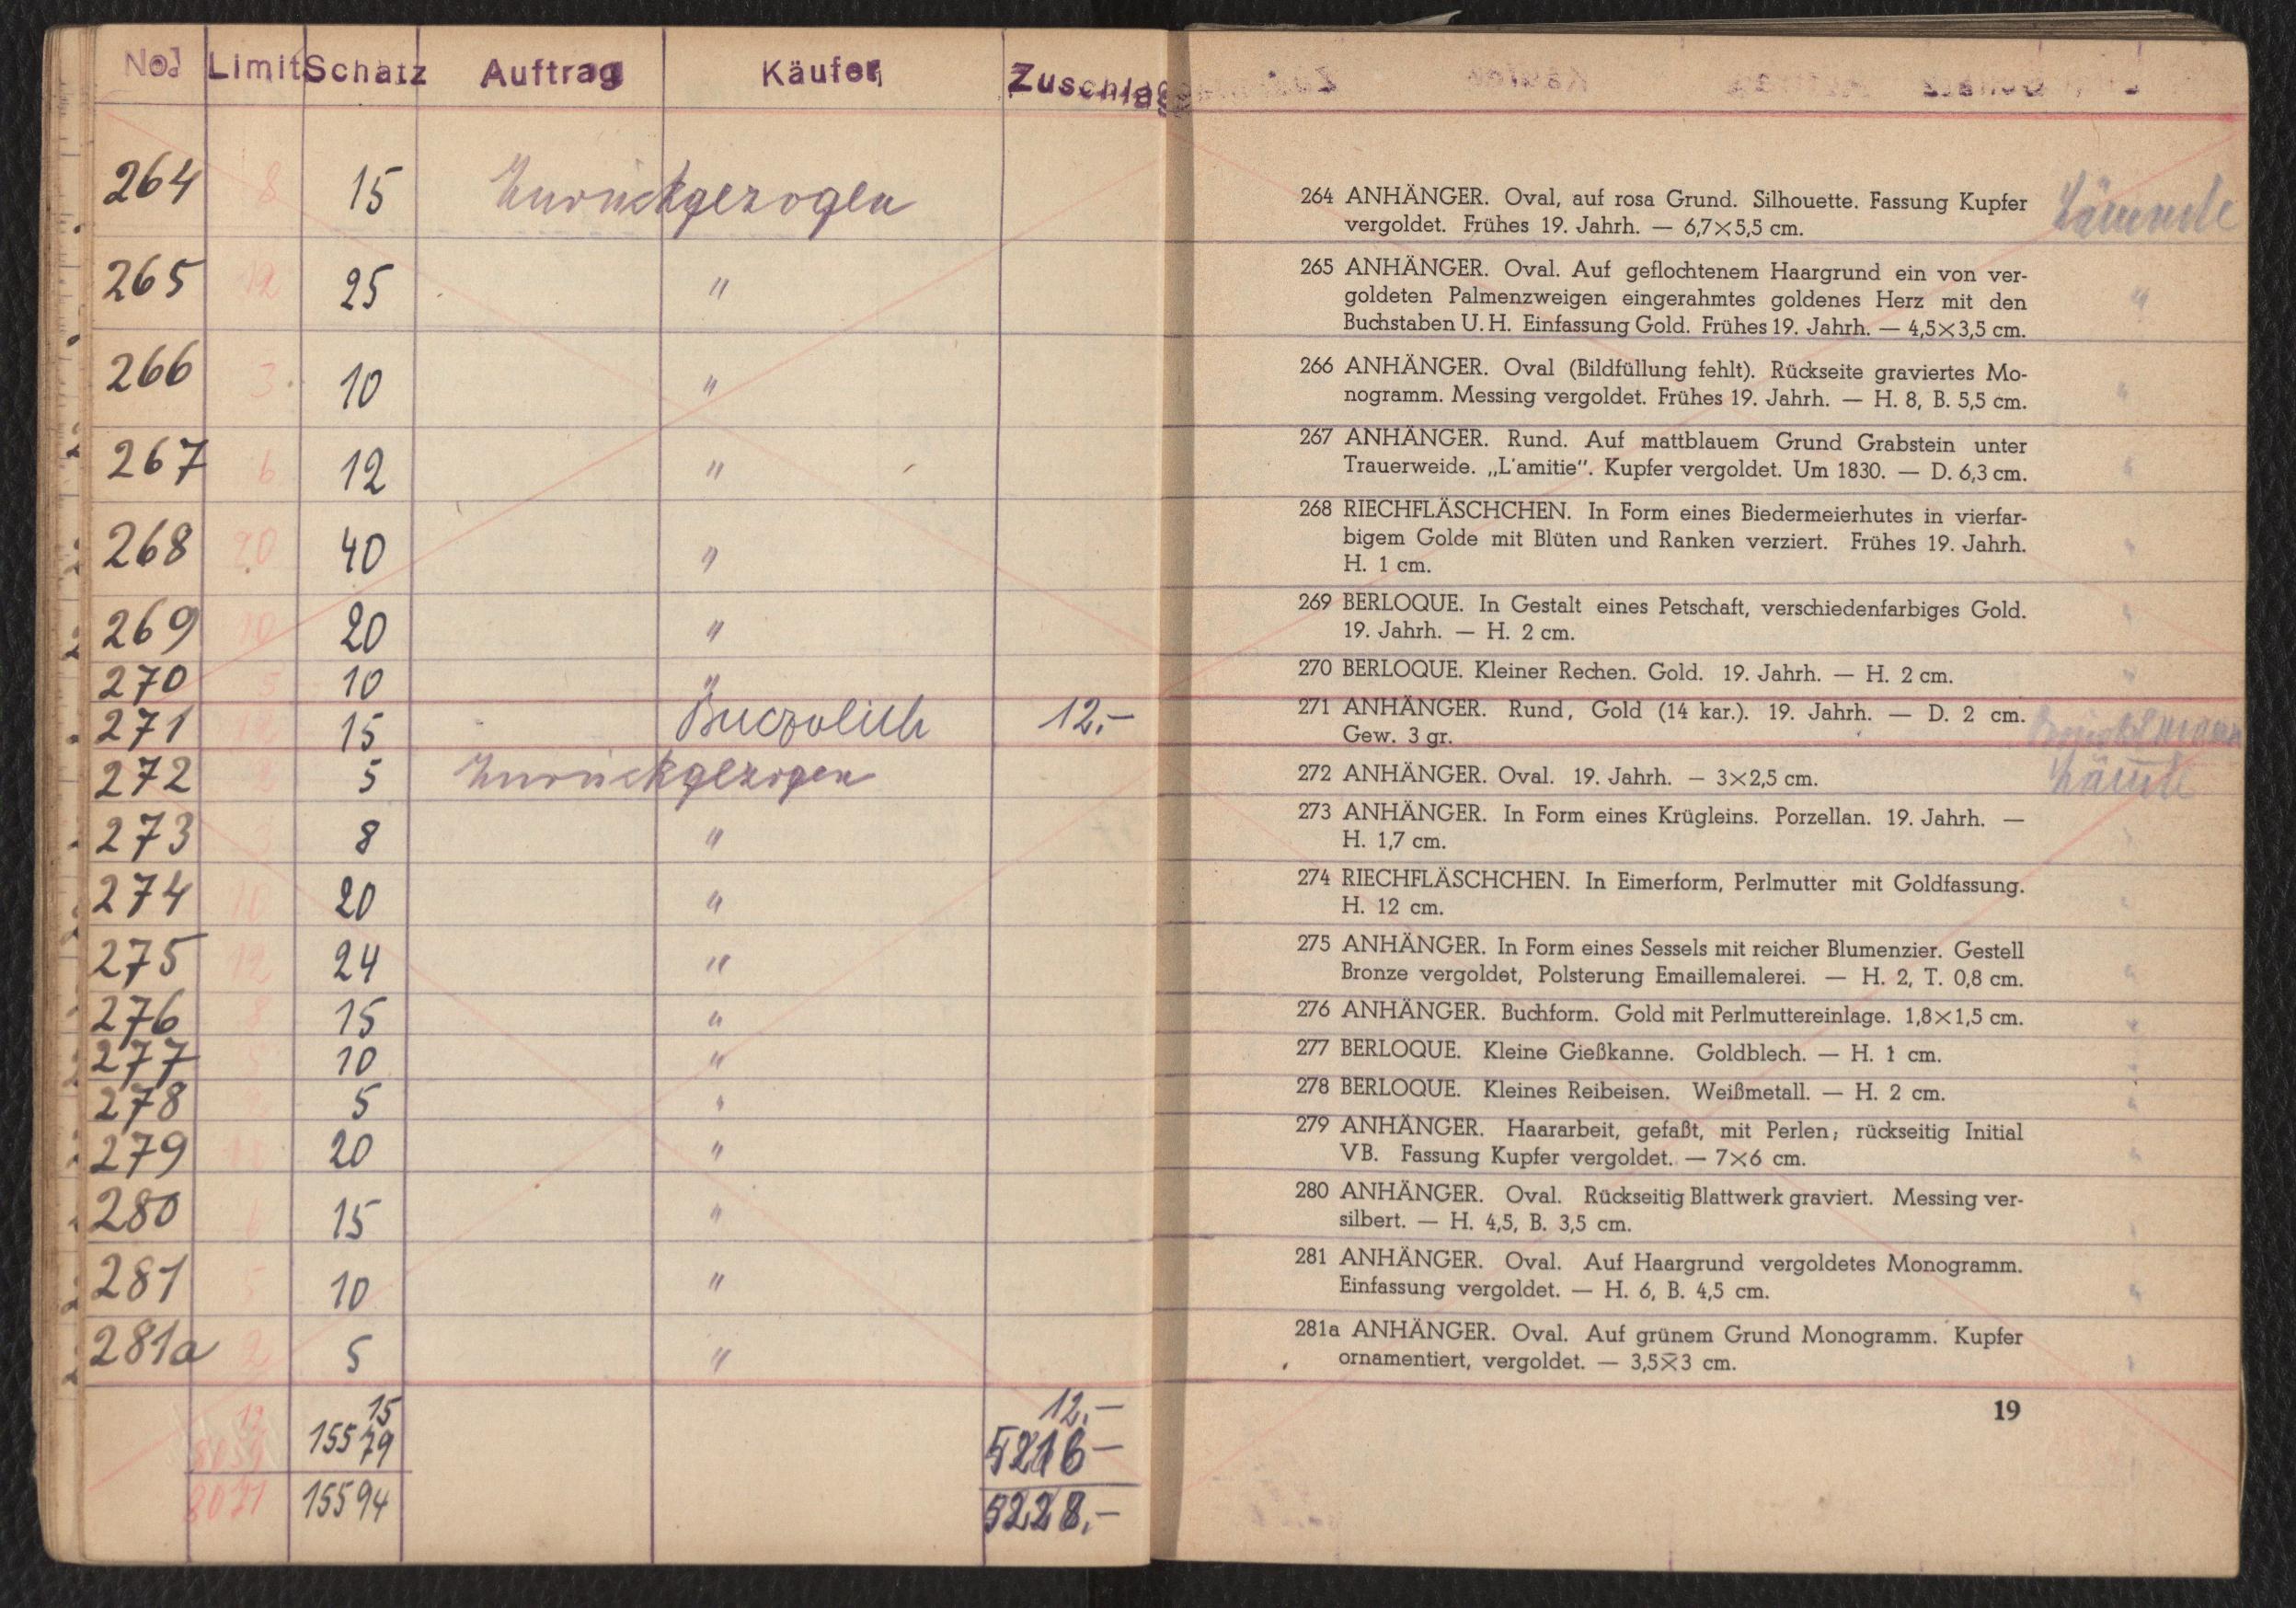 No. Limit Schatz Auftrag Käufer Zuschlag
264 8 15 Zurückgezogen
265 12 25 "
266 3 10 "
267 6 12 "
268 20 40 "
269 10 20 "
270 5 10 "
271 12 15 12.-
272 5 Zurückgezogen
273 8 "
274 10 20 "
275 12 24 "
276 8 15 "
277 5 10 "
278 5 "
279 20 "
280 6 15 "
281 5 10 "
281a 2 5 "
12 15 12.-
15579 5216-
8071 15594 5228.-
264 ANHÄNGER. Oval, auf rosa Grund. Silhouette. Fassung Kupfer
vergoldet. Frühes 19. Jahrh. — 6,7×5,5 cm.
265 ANHÄNGER. Oval. Auf geflochtenem Haargrund ein von ver-
goldeten Palmenzweigen eingerahmtes goldenes Herz mit den "
Buchstaben U. H. Einfassung Gold. Frühes 19. Jahrh. — 4,5×3,5 cm.
266 ANHÄNGER. Oval (Bildfüllung fehlt). Rückseite graviertes Mo-
nogramm. Messing vergoldet. Frühes 19. Jahrh. — H. 8, B. 5,5 cm. "
267 ANHÄNGER. Rund. Auf mattblauem Grund Grabstein unter
Trauerweide. „L'amitie“. Kupfer vergoldet. Um 1830. — D. 6,3 cm. "
268 RIECHFLÄSCHCHEN. In Form eines Biedermeierhutes in vierfar-
bigem Golde mit Blüten und Ranken verziert. Frühes 19. Jahrh. "
H. 1 cm.
269 BERLOQUE. In Gestalt eines Petschaft, verschiedenfarbiges Gold. "
19. Jahrh. — H. 2 cm.
270 BERLOQUE. Kleiner Rechen. Gold. 19. Jahrh. — H. 2 cm. "
271 ANHÄNGER. Rund, Gold (14 kar.). 19. Jahrh. — D. 2 cm.
Gew. 3 gr.
272 ANHÄNGER. Oval. 19. Jahrh. — 3×2,5 cm.
273 ANHÄNGER. In Form eines Krügleins. Porzellan. 19. Jahrh. —
H. 1,7 cm. "
274 RIECHFLÄSCHCHEN. In Eimerform, Perlmutter mit Goldfassung.
H. 12 cm. "
275 ANHÄNGER. In Form eines Sessels mit reicher Blumenzier. Gestell
Bronze vergoldet, Polsterung Emaillemalerei. — H. 2, T. 0,8 cm. "
276 ANHÄNGER. Buchform. Gold mit Perlmuttereinlage. 1,8×1,5 cm. "
277 BERLOQUE. Kleine Gießkanne. Goldblech. — H. 1 cm. "
278 BERLOQUE. Kleines Reibeisen. Weißmetall. — H. 2 cm. "
279 ANHÄNGER. Haararbeit, gefaßt, mit Perlen; rückseitig Initial
VB. Fassung Kupfer vergoldet. — 7×6 cm. "
280 ANHÄNGER. Oval. Rückseitig Blattwerk graviert. Messing ver-
silbert. — H. 4,5, B. 3,5 cm. "
281 ANHÄNGER. Oval. Auf Haargrund vergoldetes Monogramm.
Einfassung vergoldet. — H. 6, B. 4,5 cm. "
281a ANHÄNGER. Oval. Auf grünem Grund Monogramm. Kupfer
ornamentiert, vergoldet. — 3,5×3 cm. "
19